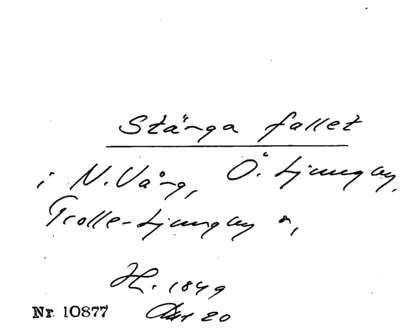 Stänga fallet
i N. Vång, Ö. Ljungby,
Trolle-Ljungby s,
H. 1849
Nr 10877 20